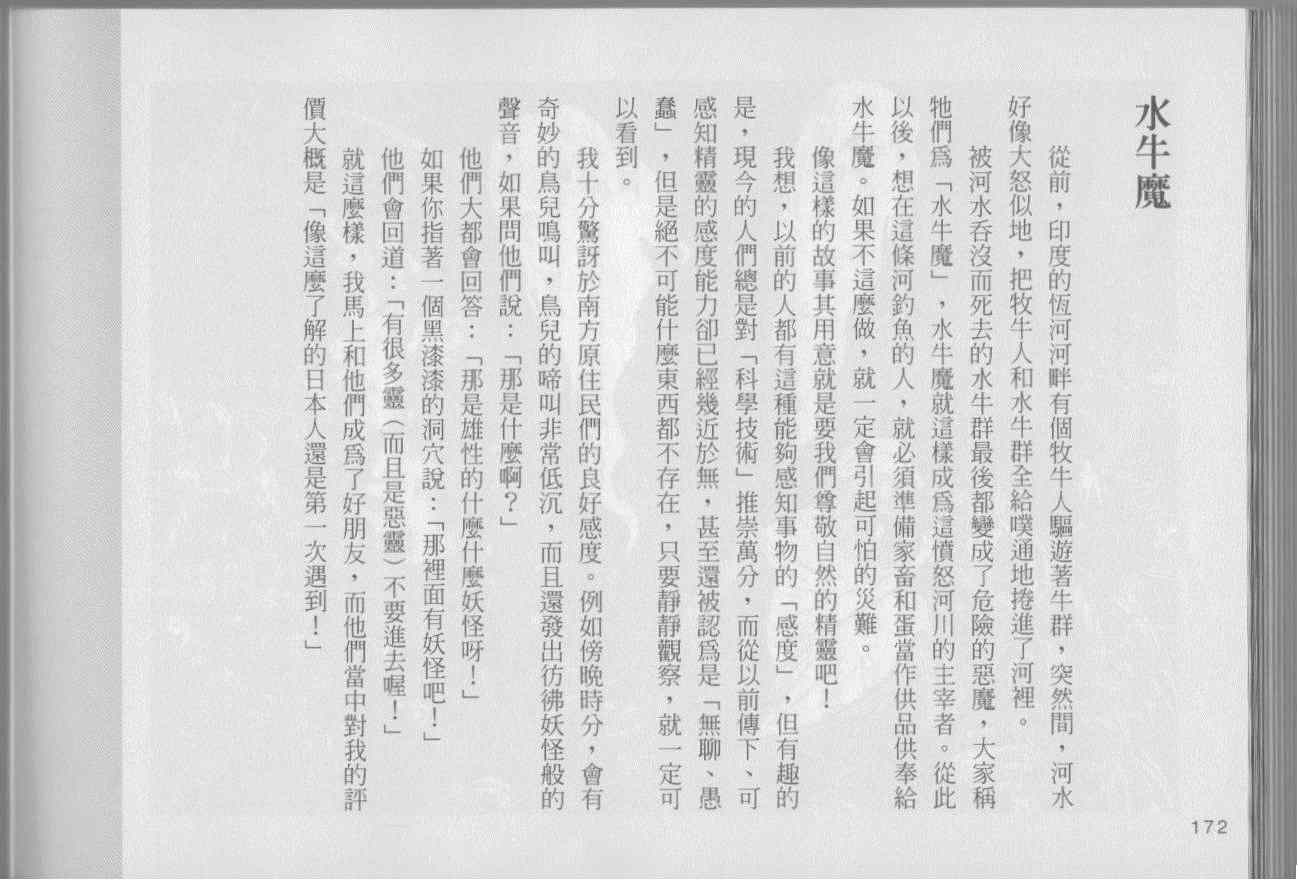 水牛魔
從前，印度的恆河河畔有個牧牛人驅遊著牛群，突然間，河水
好像大怒似地，把牧牛人和水牛群全給噗通地捲進了河裡。
被河水吞沒而死去的水牛群最後都變成了危險的惡魔，大家稱
牠們爲「水牛魔」，水牛魔就這樣成爲這憤怒河川的主宰者。從此
以後，想在這條河釣魚的人，就必須準備家畜和蛋當作供品供奉給
水牛魔。如果不這麼做，就一定會引起可怕的災難。
像這樣的故事其用意就是要我們尊敬自然的精靈吧！
我想，以前的人都有這種能夠感知事物的「感度」，但有趣的
是，現今的人們總是對「科學技術」推崇萬分，而從以前傳下、可
感知精靈的感度能力卻已經幾近於無，甚至還被認爲是「無聊、愚
蠢」，但是絕不可能什麼東西都不存在，只要靜靜觀察，就一定可
以看到。
我十分驚訝於南方原住民們的良好感度。例如傍晚時分，會有
奇妙的鳥兒鳴叫，鳥兒的啼叫非常低沉，而且還發出彷彿妖怪般的
聲音，如果問他們說：「那是什麼啊？」
他們大都會回答：「那是雄性的什麼什麼妖怪呀！」
如果你指著一個黑漆漆的洞穴說：「那裡面有妖怪吧！」
他們會回道：「有很多靈（而且是惡靈）不要進去喔！」
就這麼樣，我馬上和他們成爲了好朋友，而他們當中對我的評
價大概是「像這麼了解的日本人還是第一次遇到！」
172